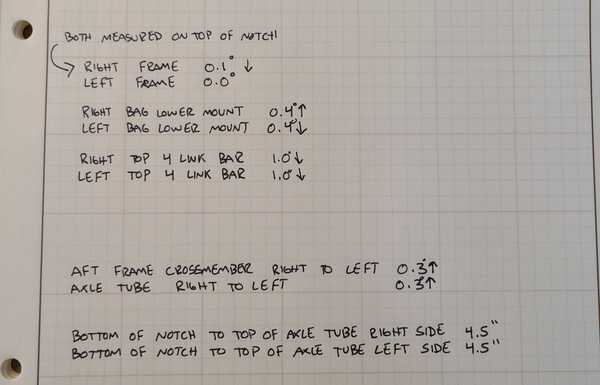 BOTH MEASURED ON TOP OF NOTCH
RIGHT FRAME 0.1° ↓
LEFT FRAME 0.0°
RIGHT BAG LOWER MOUNT 0.4°↑
LEFT BAG LOWER MOUNT 0.4°↓
RIGHT TOP 4 LINK BAR 1.0°↓
LEFT TOP 4 LINK BAR 1.0°↓
AFT FRAME CROSSMEMBER RIGHT TO LEFT 0.3°↑
AXLE TUBE RIGHT TO LEFT 0.3°↑
BOTTOM OF NOTCH TO TOP OF AXLE TUBE RIGHT SIDE 4.5"
BOTTOM OF NOTCH TO TOP OF AXLE TUBE LEFT SIDE 4.5"